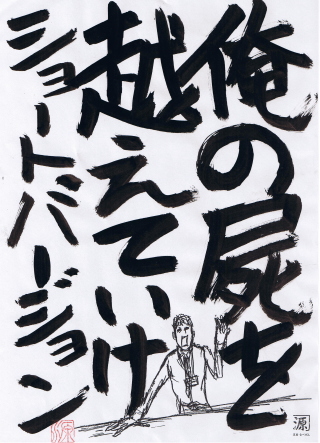 俺の屍を
越えていけ
ショートバージョン
源